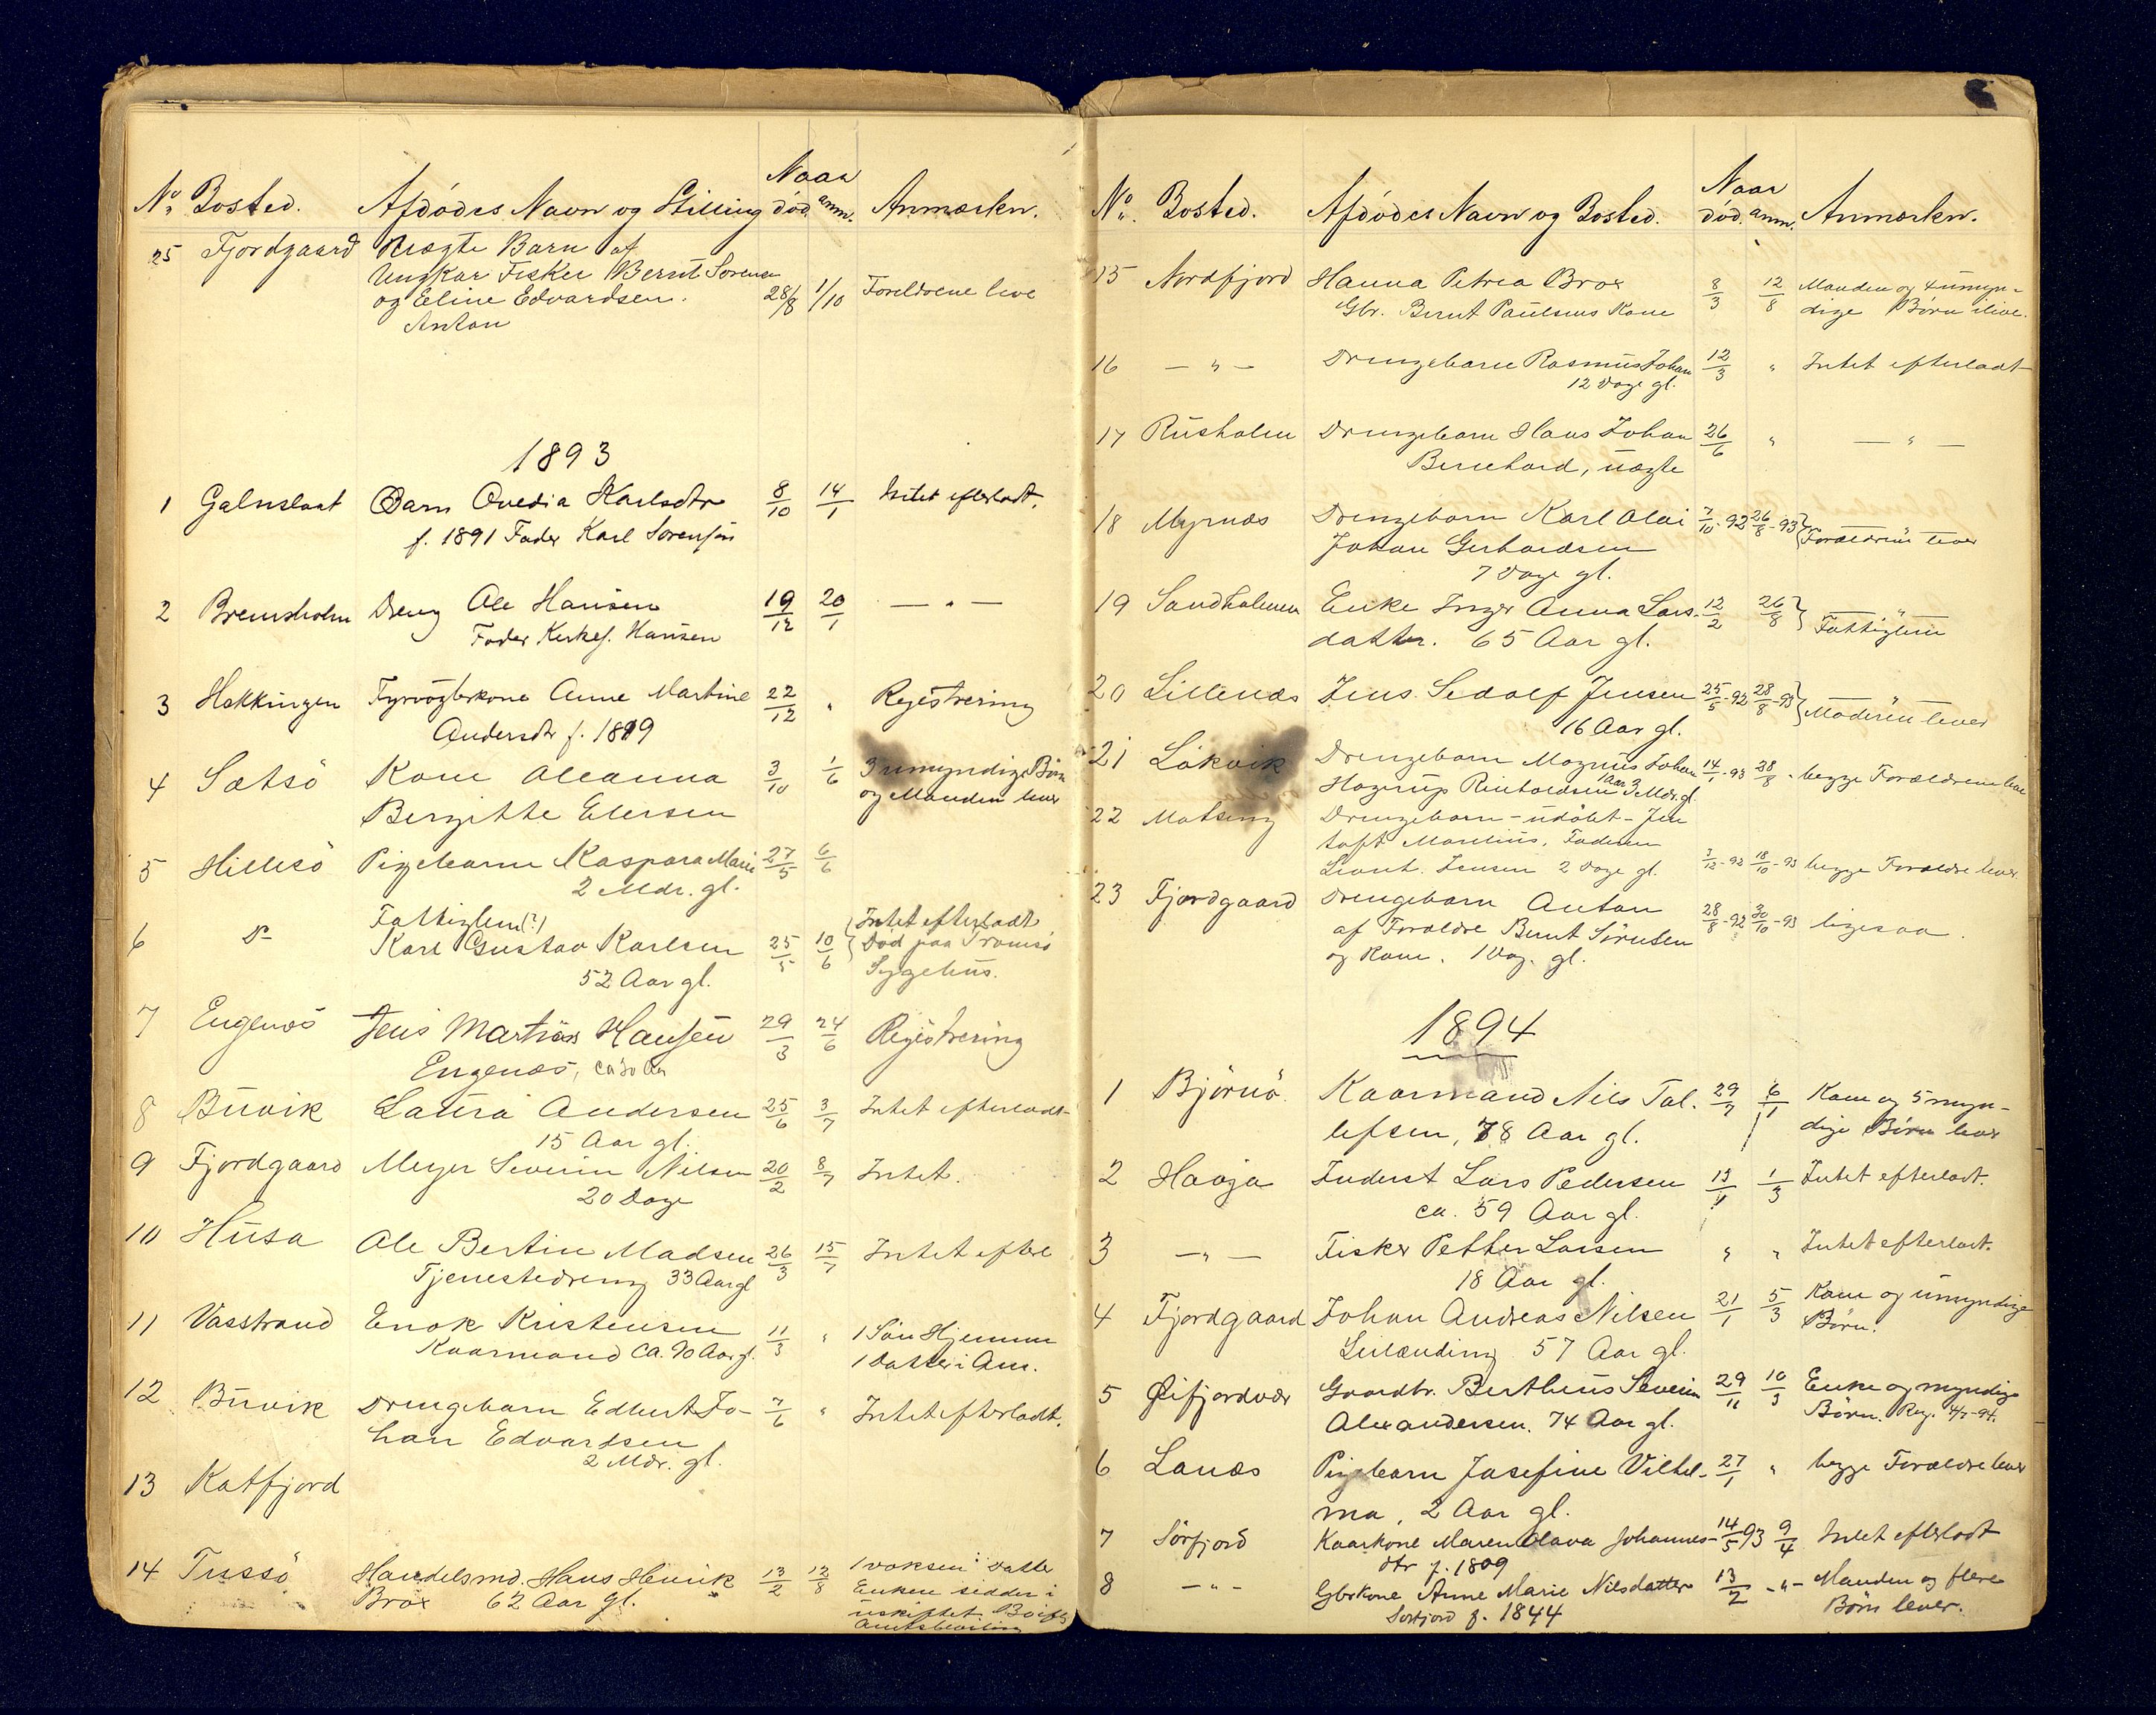 No. Bosted. Afdödes Navn og Stilling Naar död. anm. Anmærkn.
25 Fjordgaard Uægte Barn af
Ungkar Fisker Bernt Sorensen
og Eline Edvardsen. 28/8 1/10 Foreldrene leve
Anton
1893
1 Galnslaat Barn Ovedia Karlsdtr 8/10 14/1 Intet efterladt.
f. 1891 Fader Karl Sorensen
2 Bremsholm Dreng Ole Hansen 19/12 20/1 — " —
Fader Kirkes. Hansen
3 Hekkingen Fyrvogterkone Anne Martine 22/12 " Registrering
Andersdtr f. 1819
4 Sætsö Kone Oleanna 3/10 1/6 3 umyndige Börn
Bergitte Elersen og Manden lever
5 Hillesö Pigebarn Kaspara Marie 27/5 6/6
2 Mdr. gl.
Fattiglem (?) Intet efterladt
6 Do Karl Gustav Karlsen 25/5 10/6 Död paa Tromsö
52 Aar gl. Sygehus.
7 Engenæs Jens Martin Hansen 29/3 24/6 Registrering
Engenæs, ca 30 Aar
8 Buvik Laura Andersen 25/6 3/7 Intet efterladt
15 Aar gl.
9 Fjordgaard Meyer Severin Nilsen 20/2 8/7 Intet.
20 Dage
10 Husa Ole Bertin Madsen 26/3 15/7 Intet efterl
Tjenestedreng 33 Aar gl
11 Vasstrand Enok Kristensen 11/3 " 1 Sön Hjemme
Kaarmand ca. 70 Aar gl. 1 Datter i Am.
12 Buvik Drengebarn Edbert Jo- 7/6 " Intet efterladt.
han Edvardsen
2 Mdr. gl.
13 Katfjord
14 Tussö Handelsmd. Hans Henrik 13/2 12/8 1 voksen Datter
Brox 62 Aar gl. Enken sidder i
uskiftet Bo ifg
Amtsbevilling
No. Bosted. Afdödes Navn og Bosted. Naar död. anm. Anmærkn.
15 Nordfjord Hanna Petrea Brox 8/3 12/8 Manden og 4 umyn-
Gbr. Bernt Paulsens Kone dige Börn ilive.
16 — " — Drengebarn Rasmus Johan 12/3 " Intet efterladt
12 Dage gl.
17 Rusholm Drengebarn Hans Johan 26/6 " — " —
Bernhard, uægte
18 Myrnæs Drengebarn Karl Olai 7/10-92 26/8-93 Forældrene lever
Johan Gerhardsen
7 Dage gl.
19 Sandholmen Enke Inger Anna Lars- 12/2 26/8 " Fattiglem
datter. 65 Aar gl.
20 Lillenæs Jens Sedolf Jensen 25/5-92 28/8-93 " Moderen lever
16 Aar gl.
21 Lökvik Drengebarn Magnus Johan 14/1-93 28/8 - begge Forældrene leve
Hagerup Reinholdsen 1 Aar 3 Mdr. gl.
22 Drengebarn - udöbt - Jen
toft Marelius, Faderen
Leonh. Jensen 2 Dage gl. 7/12-92 18/10-93 begge Forældre lever.
23 Fjordgaard Drengebarn Anton
af Forældre Bernt Sörensen 28/8-92 30/10-93 ligesaa.
og Kone. 1 Dag. gl.
1894
1 Björnö. Kaarmand Nils Tol- 29/7 6/1 Kone og 5 myn-
lefsen, 78 Aar gl. dige Börn lever
2 Haaja Inderst Lars Pedersen 13/1 1/3 Intet efterladt.
ca. 59 Aar gl.
3 — " — Fisker Petter Larsen " " Intet efterladt.
18 Aar gl.
4 Fjordgaard Johan Andreas Nilsen 21/1 5/3 Kone og umyndige
Leilænding 57 Aar gl. Börn.
5 Öifjordvær Gaardbr. Bertheus Severin 29/11 10/3 Enke og myndige
Alexandersen. 74 Aar gl. Börn. Reg. 4/7-94.
6 Lanæs Pigebarn Josefine Vilhel- 27/1 " begge Forældre lever
ma, 2 Aar gl.
7 Sörfjord Kaarkone Maren Olava Johannes- 14/5 93 9/4 Intet efterladt
dtr f. 1809
8 — " — Gbrkone Anne Marie Nilsdatter 13/2 - " - Manden og flere
Sorfjord f. 1844 Börn lever.